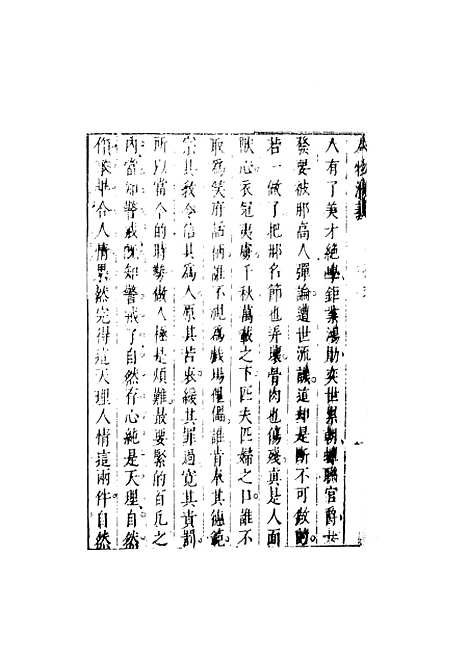 人有了美才絕學鉅業鴻勛奕世累朝蟬聯官爵
發要被那高人彈論遭世流譏這却是斷不可做的
若一做了把那名節也弄壞骨肉也傷殘真是人面
獸心衣冠夷虜千秋萬載之下匹夫匹婦之口誰不
取為笑府話柄誰不視為戲場傀儡誰肯奉其德範
宗其教令信其為人原其苦衷緩其罪過寬其責罰
所以當今的時勢做人極是煩難最要緊的百凡之
內當知警戒旣知警戒了自然存心純是天理自然
作事畢合人情果然完得這天理人情這兩件自然